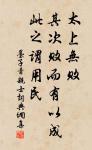 太上無敗
其次敗而有以成
此之謂用民
墨子書親士詞典國集